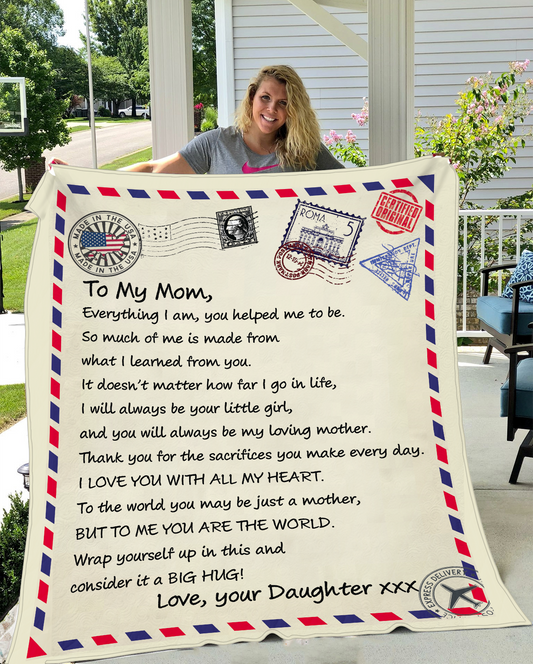 MADE IN THE USA
MADE IN THE USA
ROMA
5
CERTIFIED
ORIGINAL
To My Mom,
Everything I am, you helped me to be.
So much of me is made from
what I learned from you.
It doesn't matter how far I go in life,
I will always be your little girl,
and you will always be my loving mother.
Thank you for the sacrifices you make every day.
I LOVE YOU WITH ALL MY HEART.
To the world you may be just a mother,
BUT TO ME YOU ARE THE WORLD.
Wrap yourself up in this and
consider it a BIG HUG!
Love, your Daughter xxx
EXPRESS DELIVERY